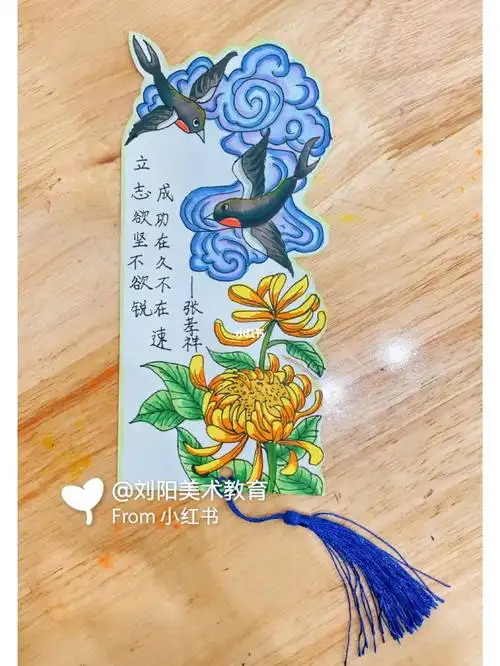 立志欲坚不欲锐
成功在久不在速
——张孝祥
小红书
@刘阳美术教育
From 小红书